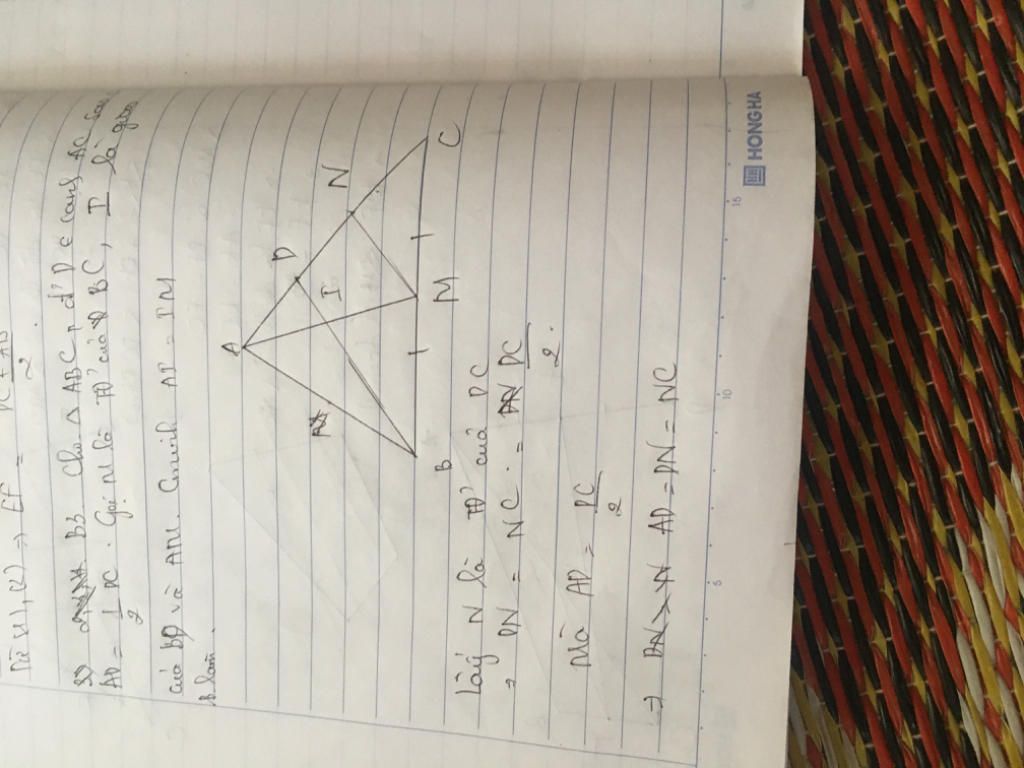 Từ (1), (2) => EF = DC + AB
2
B3 Cho △ ABC
AD = 1 DC. Gọi M là TĐ' của BC, I là giao
2
của BD và AM. Cminh AI = IM
B làm
A
D
N
I
B
M
C
Lấy N là TĐ' của DC
=> DN = NC = DC
2
Mà AD = DC
2
=> AD = DN = NC
5
10
15
HONGHA